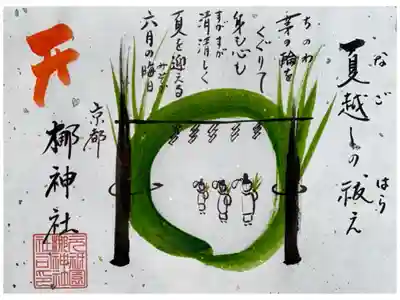 夏越しの祓え
なご
はら
ちのわ
茅の輪を
くぐりて
身も心も
すがすが
清清しく
夏を迎える
みそか
六月の晦日
京都
梛神社